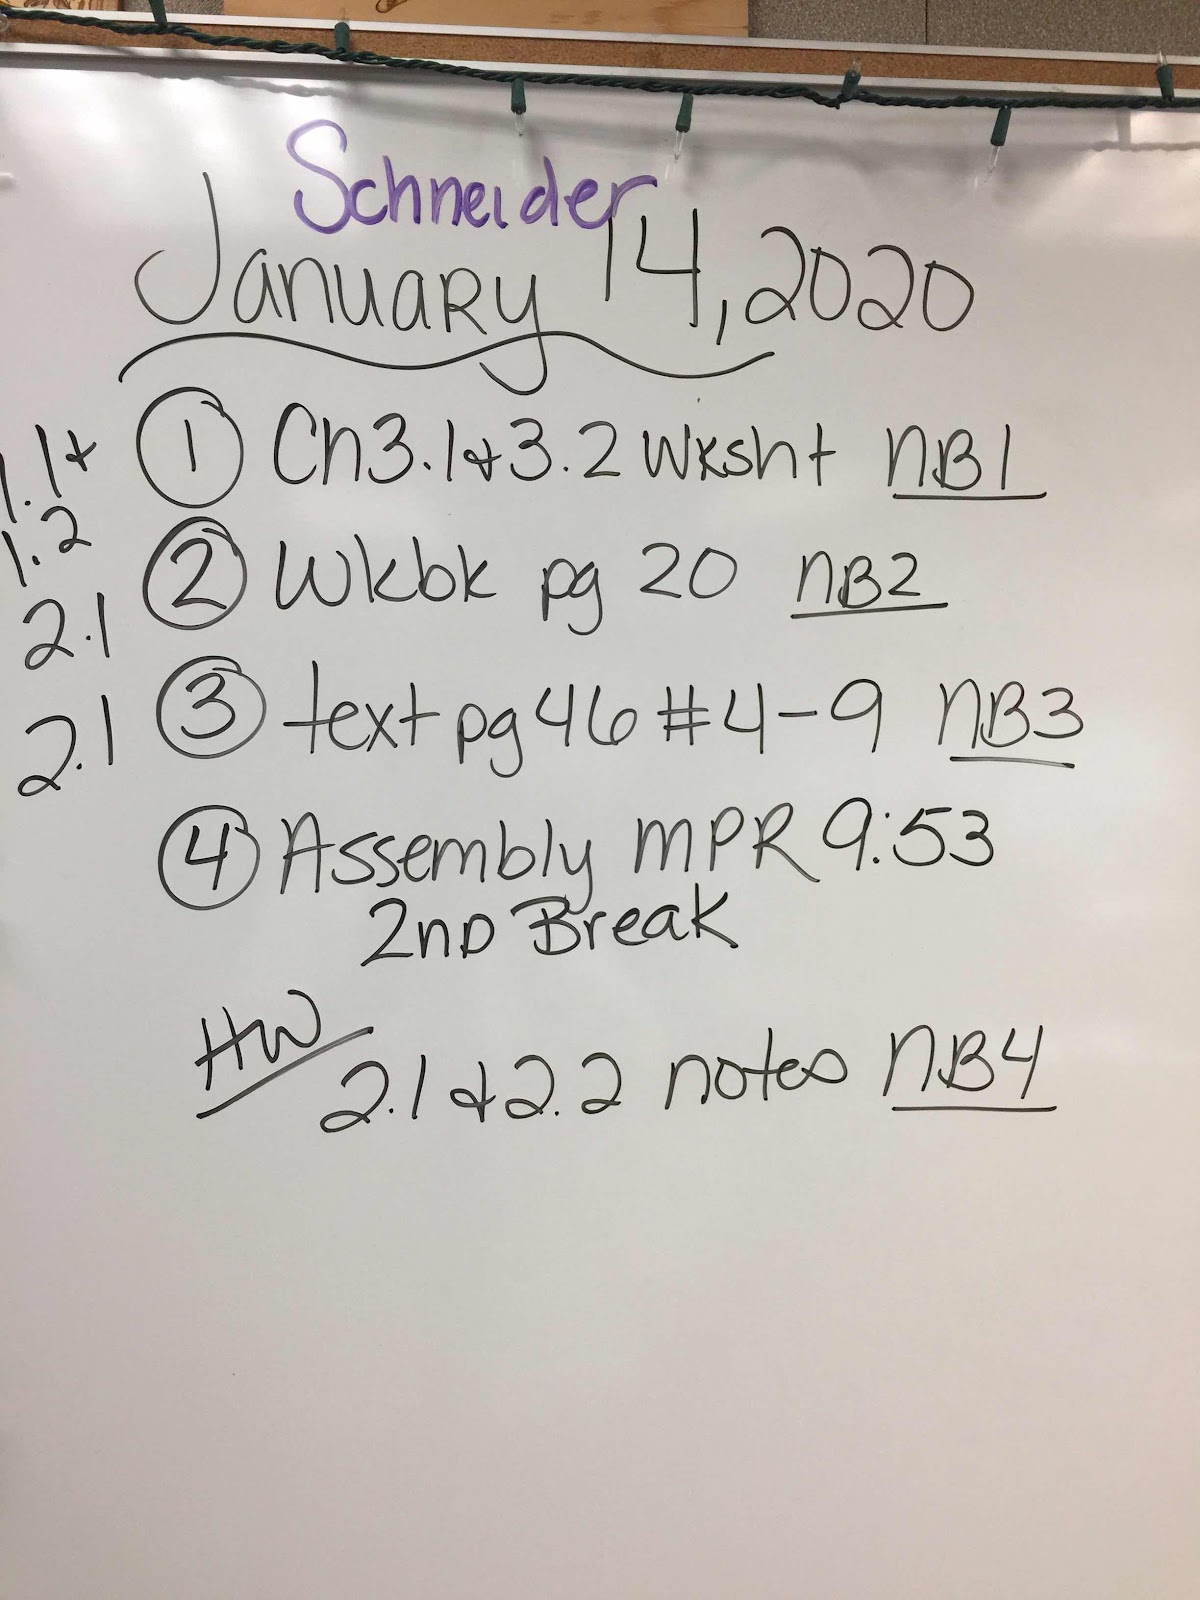 Schneider
January 14, 2020
1.1+
1.2
① Ch3.1&3.2 Wksht NB1
2.1 ② Wkbk pg 20 NB2
2.1 ③ text pg 46 #4-9 NB3
④ Assembly MPR 9:53
2nd Break
HW
2.1 & 2.2 notes NB4